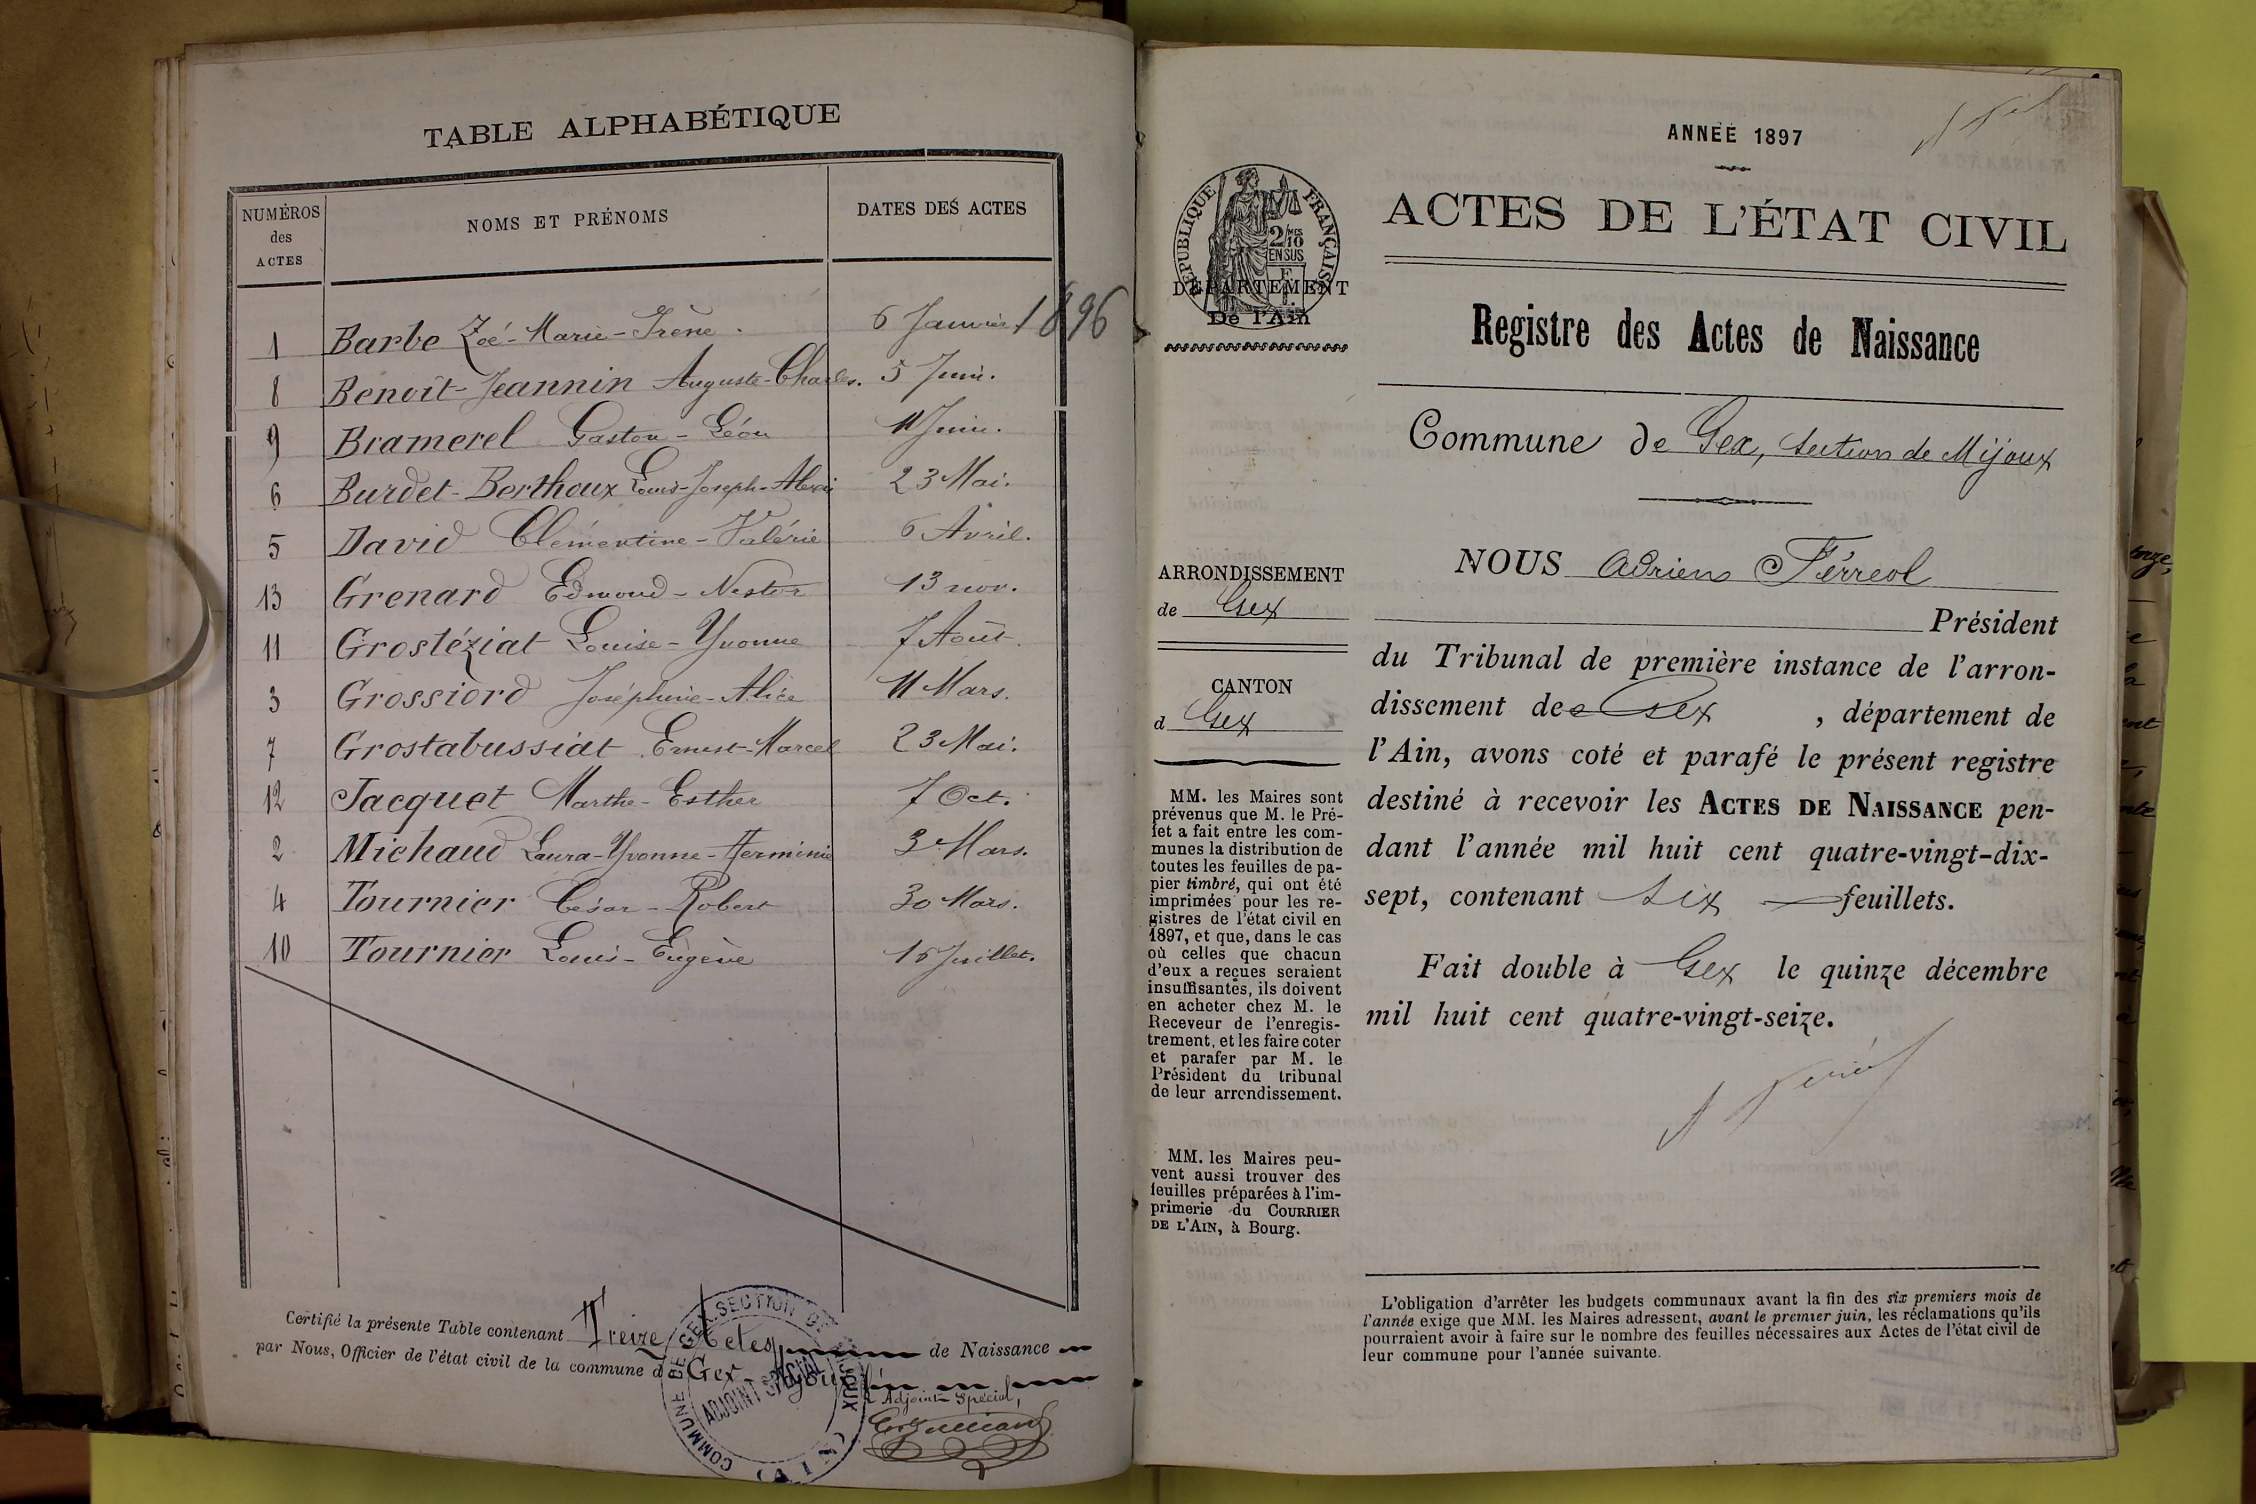 TABLE ALPHABÉTIQUE
NUMÉROS des ACTES
NOMS ET PRÉNOMS
DATES DES ACTES
1 Barbe Zoé-Marie-Irène. 6 Janvier 1896
8 Benoît-Jeannin Auguste-Charles. 5 Juin.
9 Bramerel Gaston-Léon 11 Juin.
6 Burdet-Berthoux Louis-Joseph-Alexis 23 Mai.
5 David Clémentine-Valérie 6 Avril.
13 Grenard Edmond-Nestor 13 nov.
11 Grostéziat Louise-Yvonne 7 Août.
3 Grossiord Joséphine-Alice 11 Mars.
7 Grostabussiat Ernest-Marcel 23 Mai.
12 Jacquet Marthe-Esther 7 Oct.
2 Michaud Laura-Yvonne-Herminie 3 Mars.
4 Tournier César-Robert 30 Mars.
10 Tournier Louis-Eugène 16 Juillet.
Certifié la présente Table contenant Treize Actes de Naissance
par Nous, Officier de l'état civil de la commune de Gex-Mijoux
L'Adjoint-Spécial,
COMMUNE DE GEX. SECTION DE MIJOUX (AIN)
ADJOINT SPÉCIAL
ANNÉE 1897
RÉPUBLIQUE FRANÇAISE
2/10 MES
EN SUS
DÉPARTEMENT
De l'Ain
ACTES DE L'ÉTAT CIVIL
Registre des Actes de Naissance
Commune de Gex, Section de Mijoux
ARRONDISSEMENT
de Gex
CANTON
d Gex
MM. les Maires sont
prévenus que M. le Pré-
fet a fait entre les com-
munes la distribution de
toutes les feuilles de pa-
pier timbré, qui ont été
imprimées pour les re-
gistres de l'état civil en
1897, et que, dans le cas
où celles que chacun
d'eux a reçues seraient
insuffisantes, ils doivent
en acheter chez M. le
Receveur de l'enregis-
trement, et les faire coter
et parafer par M. le
Président du tribunal
de leur arrondissement.
MM. les Maires peu-
vent aussi trouver des
feuilles préparées à l'im-
primerie du COURRIER
DE L'AIN, à Bourg.
NOUS Adrien Férréol
Président
du Tribunal de première instance de l'arron-
dissement de Gex, département de
l'Ain, avons coté et parafé le présent registre
destiné à recevoir les ACTES DE NAISSANCE pen-
dant l'année mil huit cent quatre-vingt-dix-
sept, contenant six feuillets.
Fait double à Gex le quinze décembre
mil huit cent quatre-vingt-seize.
L'obligation d'arrêter les budgets communaux avant la fin des six premiers mois de
l'année exige que MM. les Maires adressent, avant le premier juin, les réclamations qu'ils
pourraient avoir à faire sur le nombre des feuilles nécessaires aux Actes de l'état civil de
leur commune pour l'année suivante.